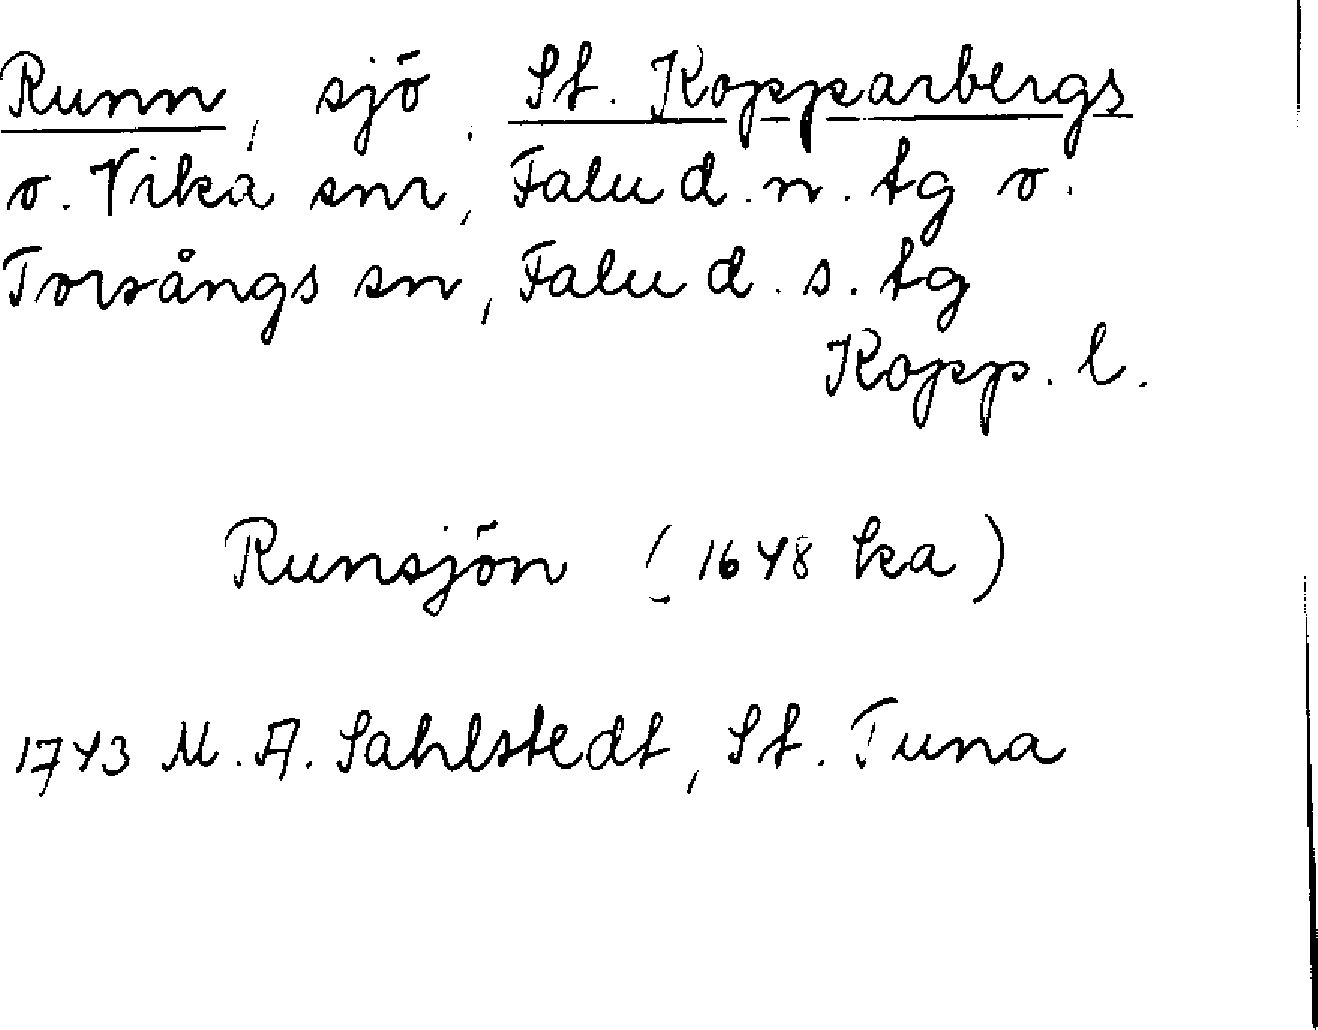 Runn, sjö. St. Kopparbergs
o. Vika snr, Falu d. n. tg o.
Torsångs sn, Falu d. s. tg
Kopp. l.
Runsjön (1648 ka)
1743 M. A. Sahlstedt, St. Tuna